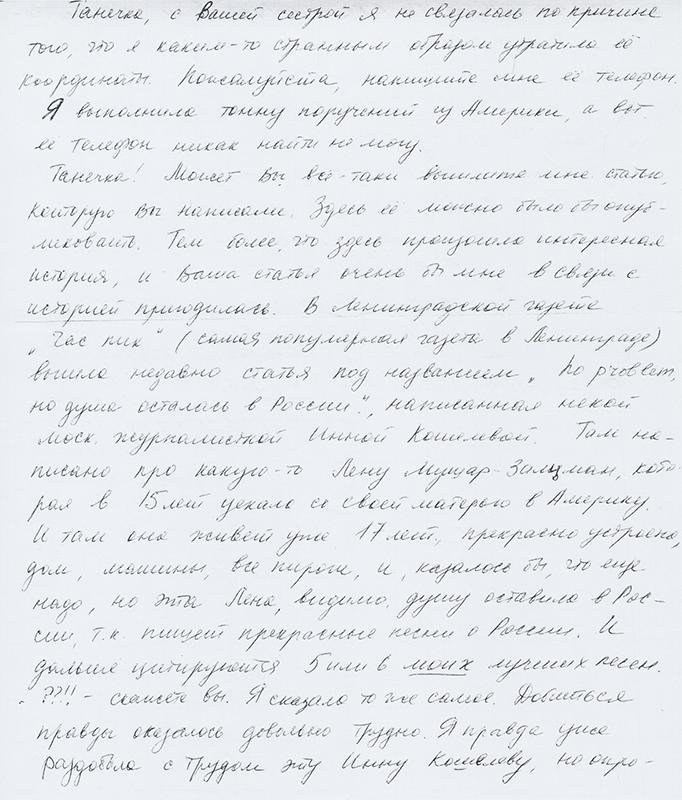 Танечка, с Вашей сестрой я не связалась по причине
того, что я каким-то странным образом утратила её
координаты. Пожалуйста, напишите мне её телефон.
Я выполнила тонну поручений из Америки, а вот
её телефон никак найти не могу.
Танечка! Может Вы всё-таки вышлите мне статью,
которую Вы написали. Здесь её можно было бы опуб-
ликовать. Тем более, что здесь произошла интересная
история, и Ваша статья очень бы мне в связи с
историей пригодилась. В Ленинградской газете
„Час пик" (самая популярная газета в Ленинграде)
вышла недавно статья под названием
но душа осталась в России", написанная некой
моск. журналисткой Инной Кошелевой. Там на-
писано про какую-то Лену Мущар-Зальцман, кото-
рая в 15 лет уехала со своей матерью в Америку.
И там она живёт уже 17 лет, прекрасно устроена,
дом, машины, все пироги, и, казалось бы, что еще
надо, но эта Лена, видимо, душу оставила в Рос-
сии, т.к. пишет прекрасные песни о России. И
дальше цитируются 5 или 6 моих лучших песен.
- ??!! - скажете вы. Я сказала то же самое. Добиться
правды оказалось довольно трудно. Я правда уже
раздобыла с трудом эту Инну Кошелеву, но опро-